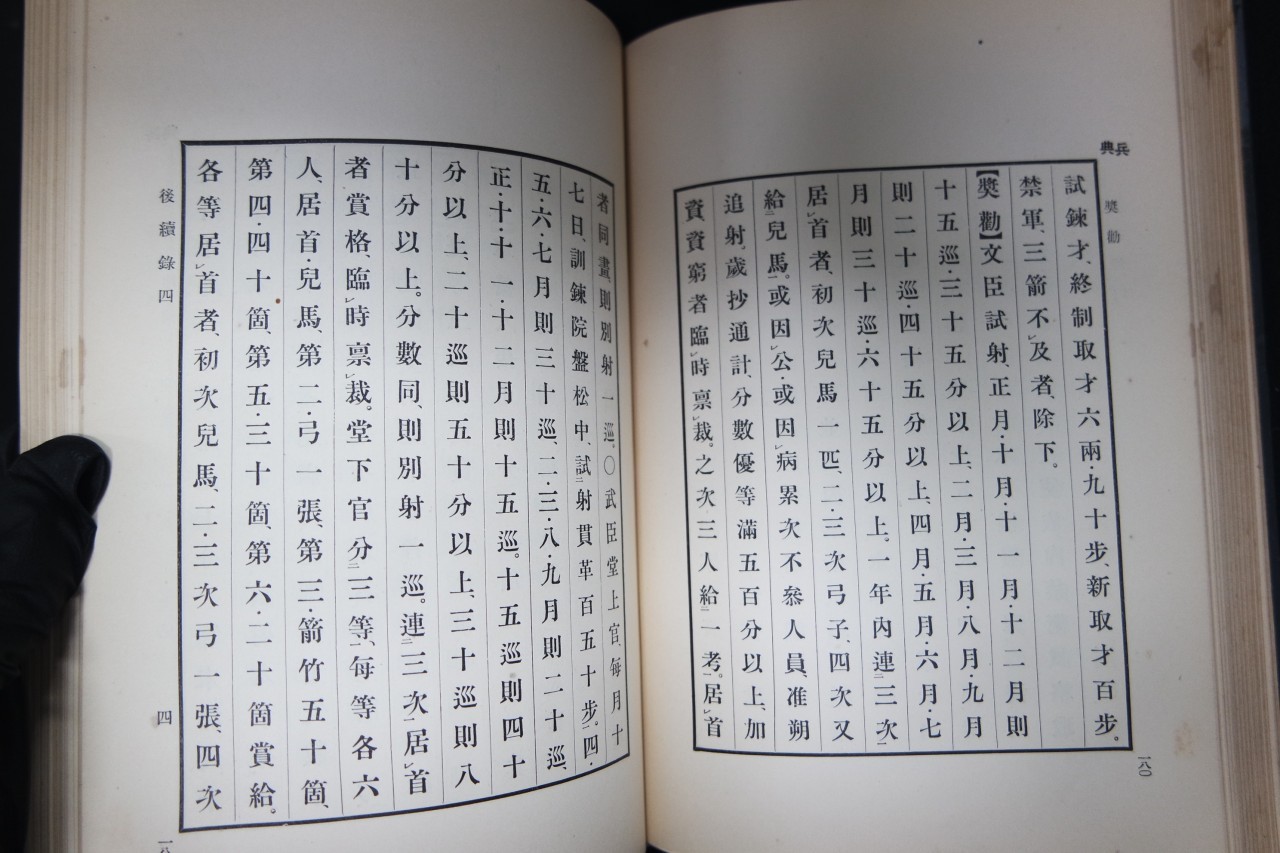 兵典
奬勸
一八〇
試鍊才、終制取才六兩·九十步、新取才百步。
禁軍、三箭不レ及者、除下。
【奬勸】文臣試射、正月·十月·十一月·十二月則
十五巡·三十五分以上、二月·三月·八月·九月
則二十巡四十五分以上、四月·五月·六月·七
月則三十巡·六十五分以上。一年內連二三次一
居レ首者、初次兒馬一匹、二·三次弓子、四次又
給二兒馬一。或因レ公·或因レ病累次不參人員、准朔
追射。歲抄通計、分數優等滿五百分以上、加
資、資窮者臨レ時禀レ裁。之次三人給二一考一。居レ首
者同畫則別射一巡、〇武臣堂上官、每月十
七日、訓鍊院盤松中、試二射貫革百五十步一。四·
五·六·七月則三十巡、二·三·八·九月則二十巡、
正·十·十一·十二月則十五巡。十五巡則四十
分以上、二十巡則五十分以上、三十巡則八
十分以上。分數同、則別射一巡。連二三次一居レ首
者賞格、臨レ時禀レ裁。堂下官分二三等一、每等各六
人、居首·兒馬、第二·弓一張、第三·箭竹五十箇、
第四·四十箇、第五·三十箇、第六·二十箇賞給。
各等居レ首者、初次兒馬、二·三次弓一張、四次
後續錄四
四